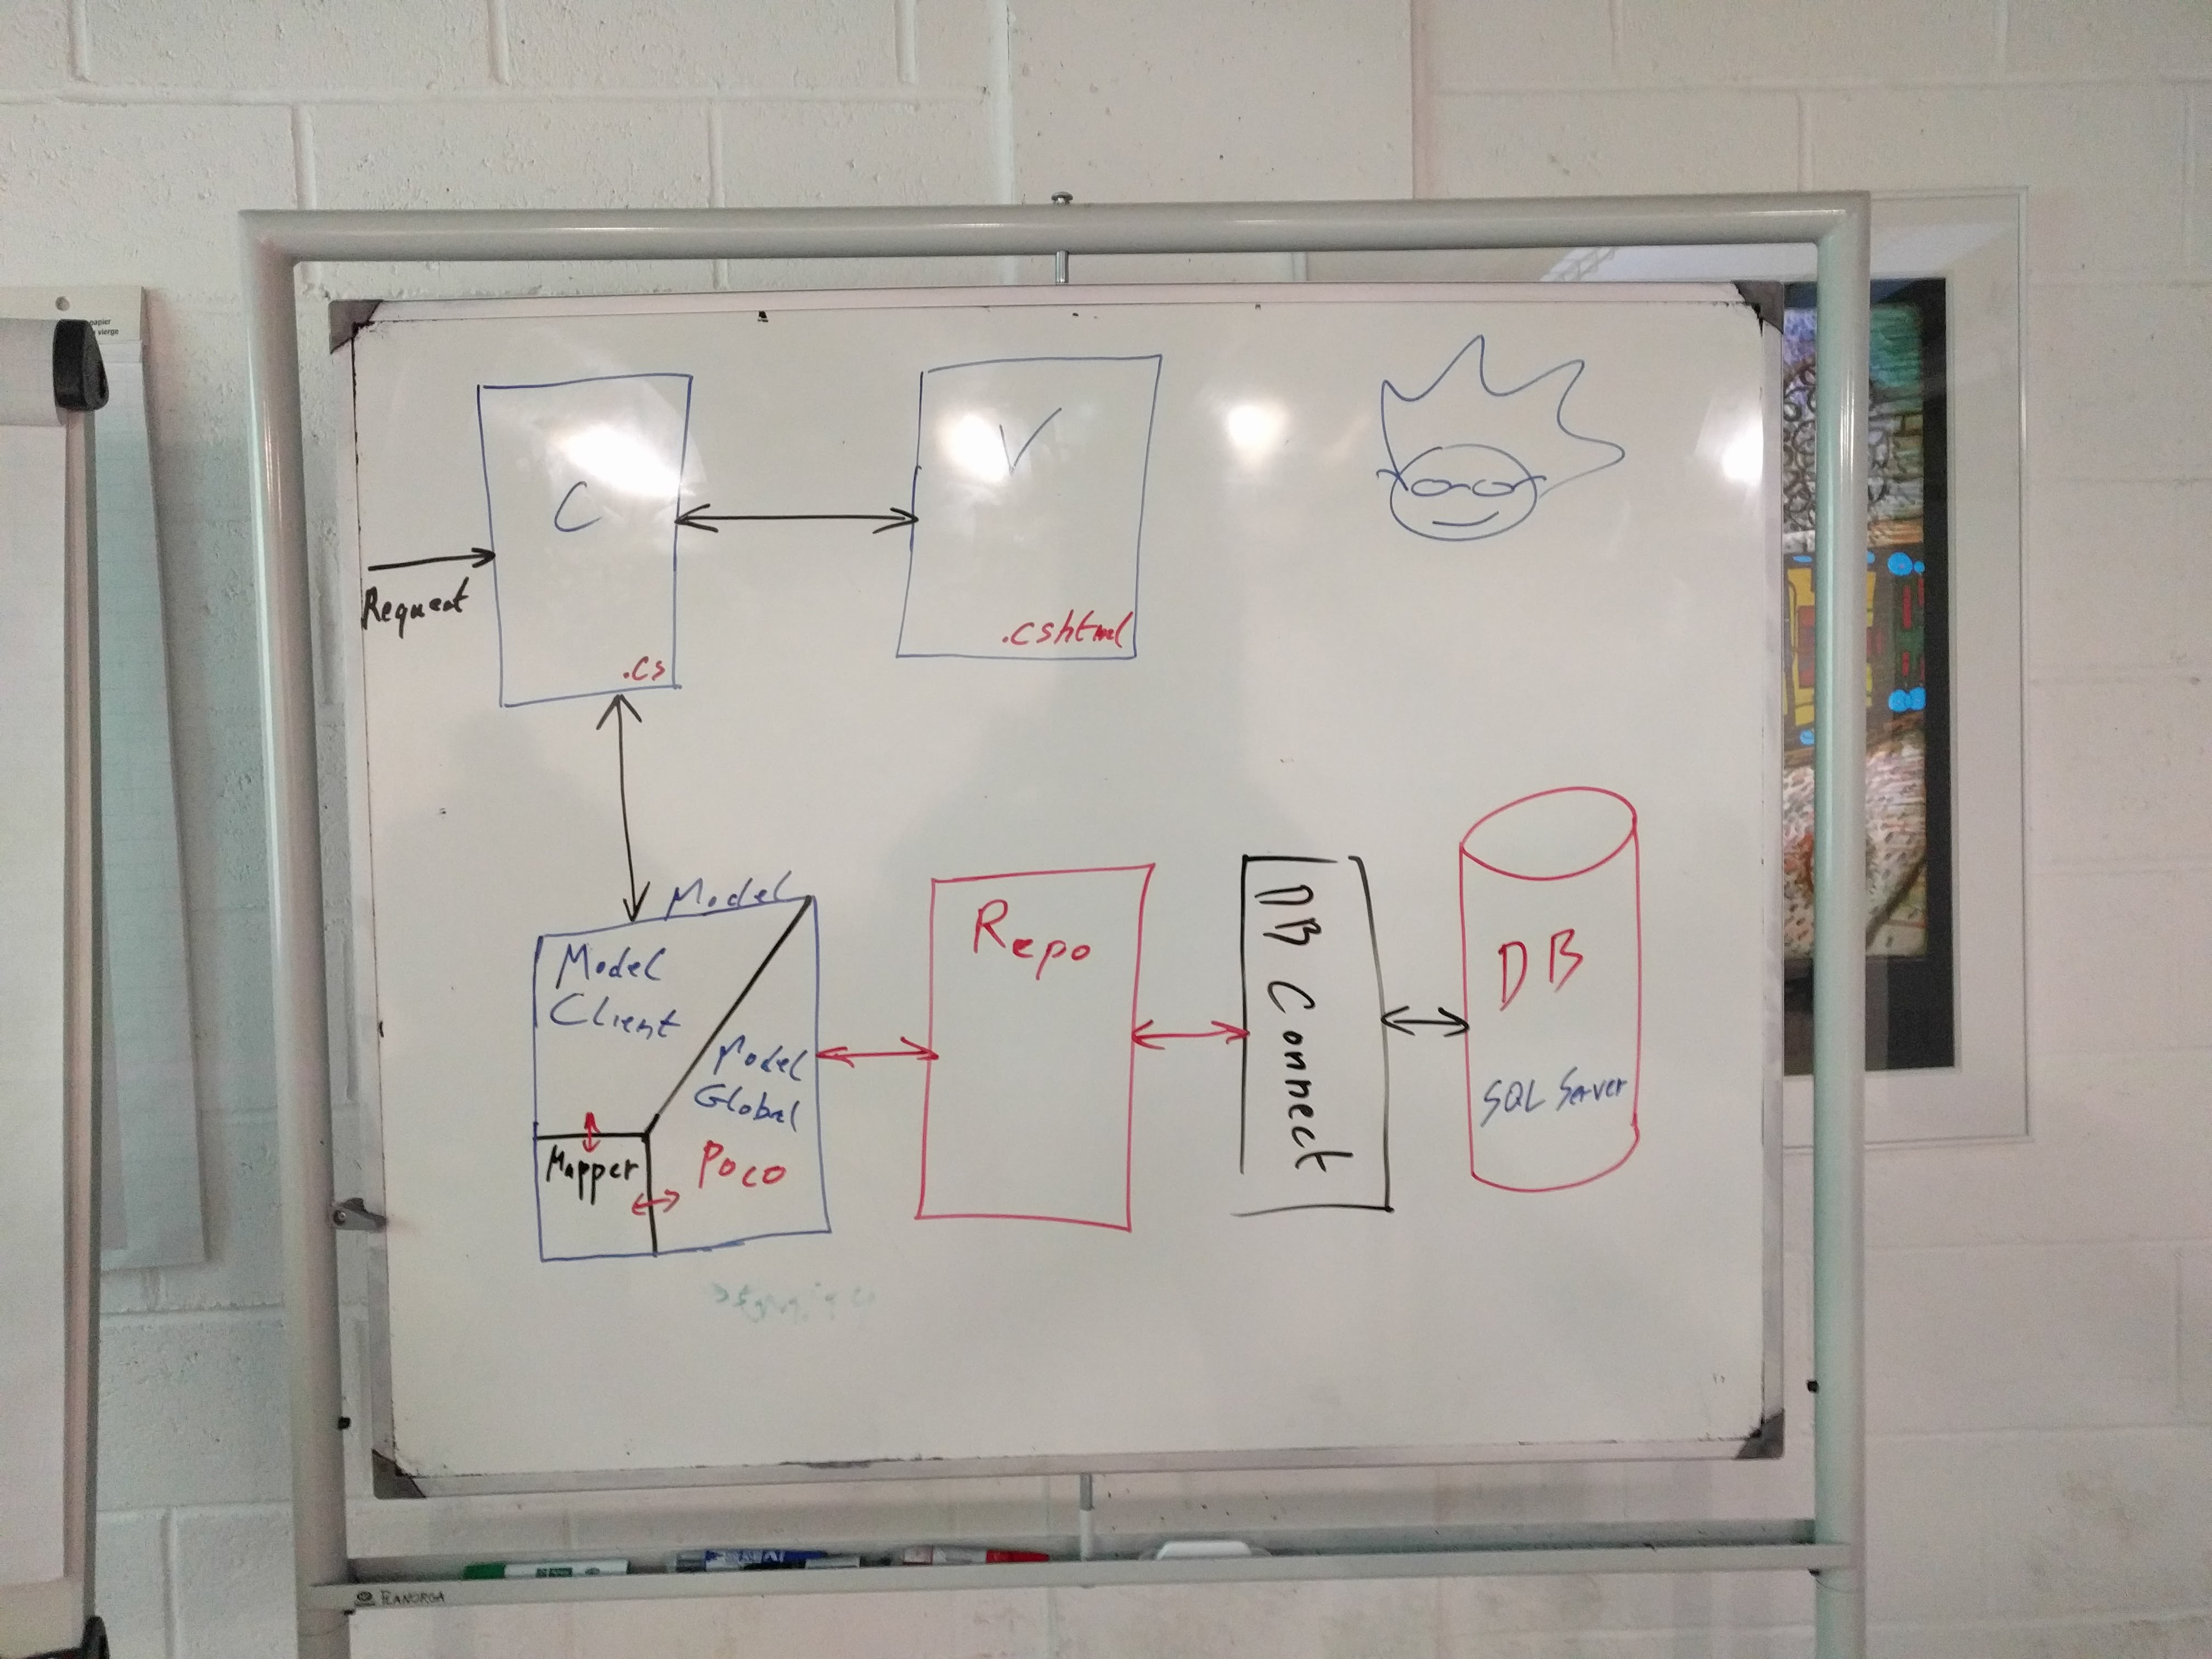 papier
vierge
C
V
Request
.cs
.cshtml
Model
Model
Client
Model
Global
Mapper
Poco
Repo
DB Connect
DB
SQL Server
PLANORGA